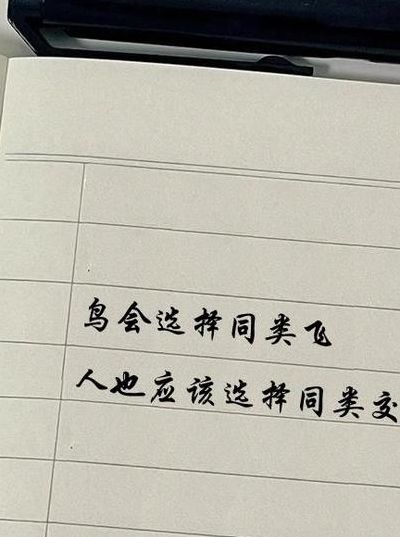 鸟会选择同类飞
人也应该选择同类交